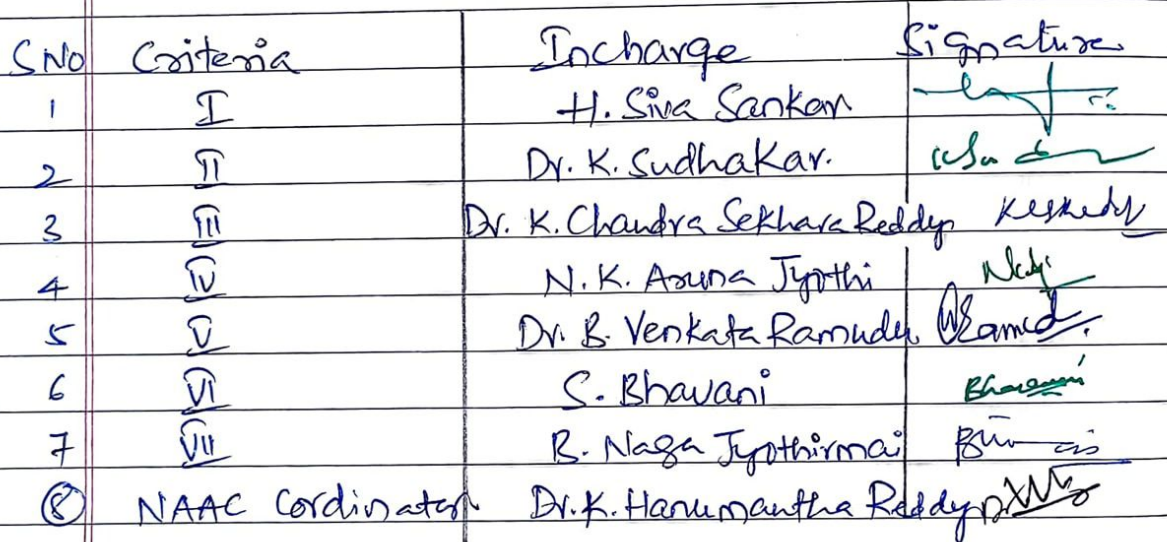 SNO Criteria Incharge Signature
1 I H. Siva Sankar
2 II Dr. K. Sudhakar.
3 III Dr. K. Chandra Sekhara Reddy
4 IV N.K. Aruna Jyothi
5 V Dr. B. Venkata Ramudu
6 VI S. Bhavani Bhavani
7 VII B. Naga Jyothirmai
8 NAAC Cordinator Dr. K. Hanumantha Reddy